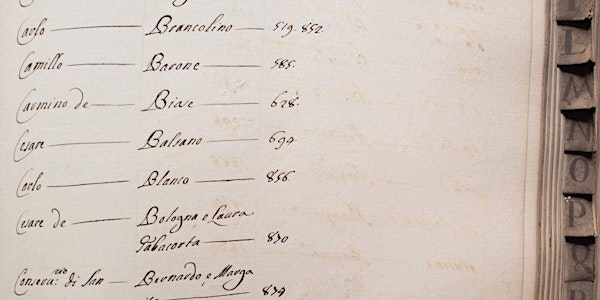 Carlo Brancolino 519. 852.
Camillo Barone 585.
Carmino de Biase 628.
Cesare Balsano 694.
Carlo Blanco 856.
Cesare de Bologna, e Laura
Tabacorta 870
Conserv.rio di San Bernardo, e Marga
874
L
M
N
O
P
Q
R